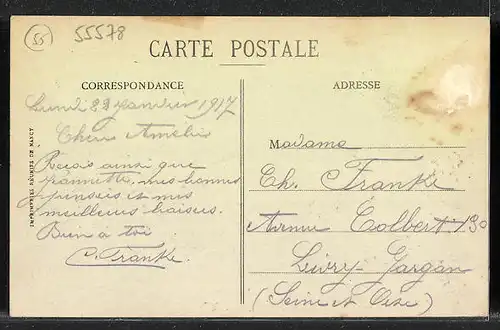 55
55578
CARTE POSTALE
CORRESPONDANCE
Lundi 22 Janvier 1917
Chère Amélie
Reçois ainsi que
Jeannette, mes bonnes
pensées et mes
meilleurs baisers.
Bien à toi
C. Franke.
IMPRIMERIES RÉUNIES DE NANCY
ADRESSE
Madame
Ch. Franke
Avenue Colbert 130
Livry-Gargan
(Seine et Oise)